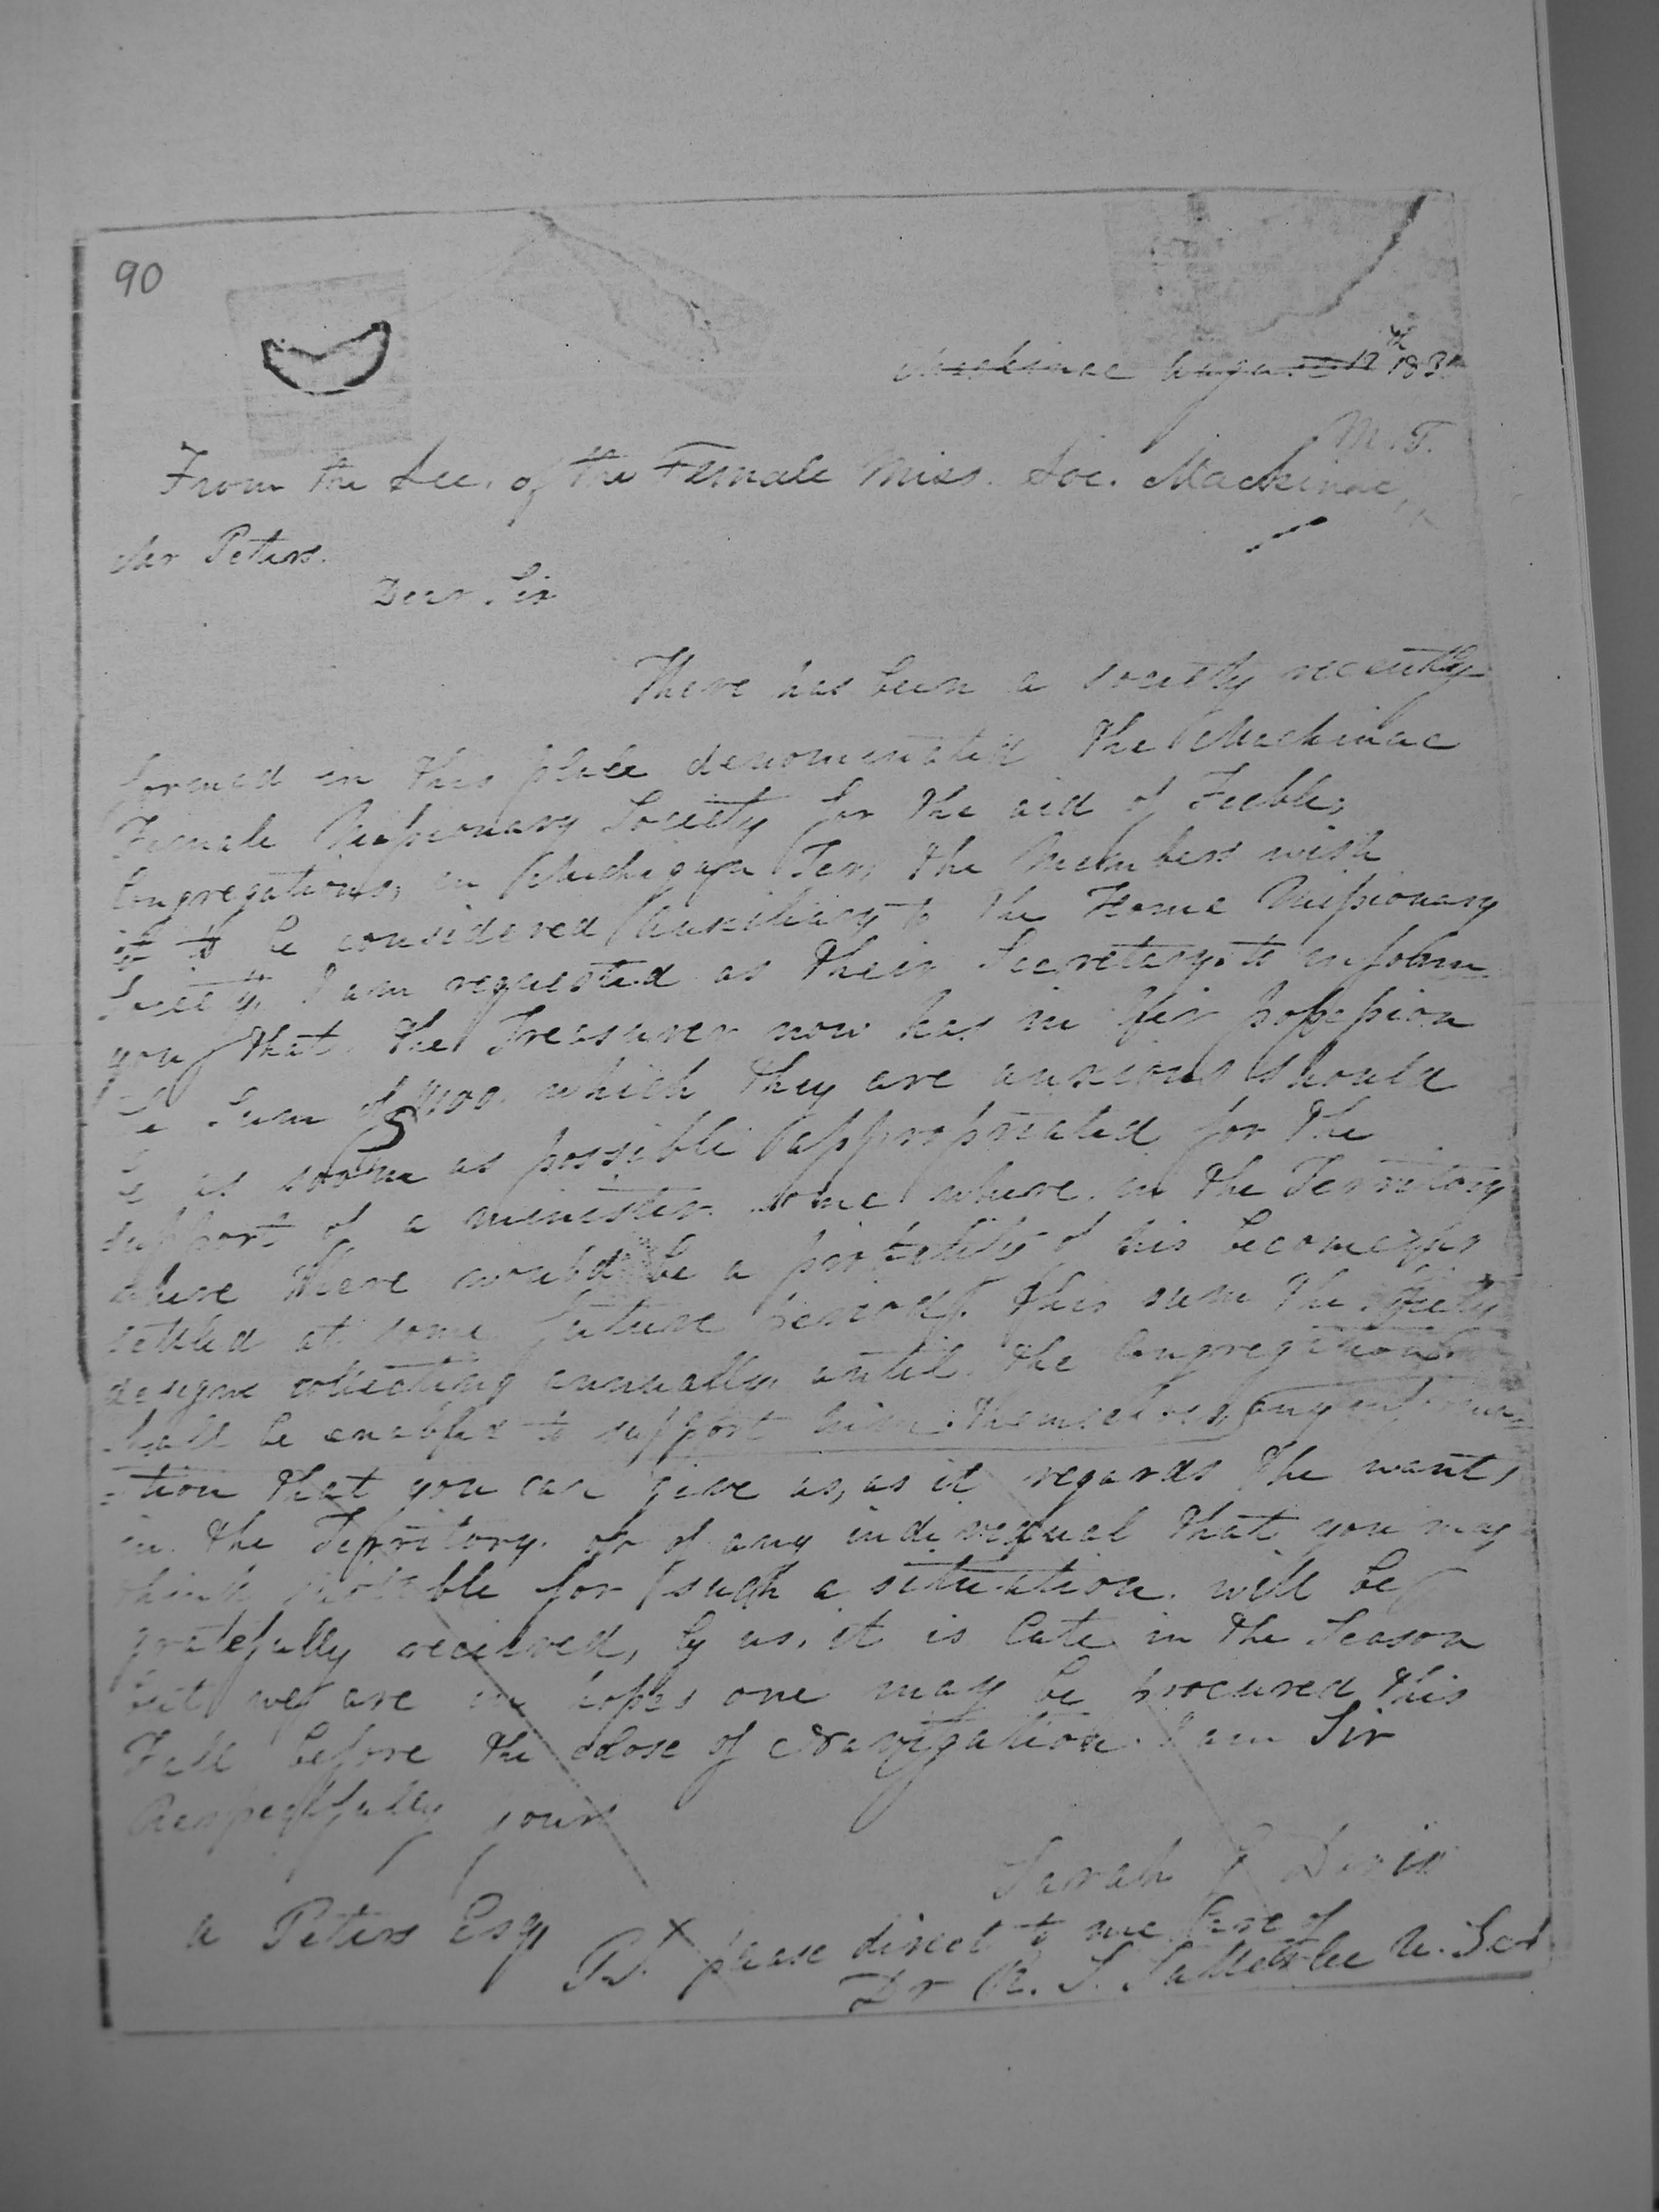 90
Mackinac August 12th 183
M. T.
From the Sec. of the Female Miss. Soc. Mackinac
Mr Peters.
Dear Sir
There has been a society recently
formed in this place denominated the Mackinac
Female Missionary Society for the aid of Feeble,
Congregations, in Michigan Ter, the Members wish
it to be considered Auxiliary to the Home Missionary
Society, I am requested as their Secretary to inform
you that the Treasurer now has in her possession
the Sum of $100. which they are anxious should
be as soon as possible appropriated for the
support of a minister some where in the Territory
where there would be a of his becoming
settled at some future period. this sum the Society
designe collecting annually until the Congregation
shall be enabled to support him themselves, any informa-
-tion that you can give us, as it regards the wants
in the Territory. or of any individual that you may
think suitable for such a situation. will be
gratefully received, by us, it is late in the Season
but we are in hopes one may be procured this
Fall before the close of Navigation. I am Sir
Respectfully yours
Sarah Davis
A Peters Esqr
P.S. please direct to me Care of
Dr R. S. Satterlee U. S. A